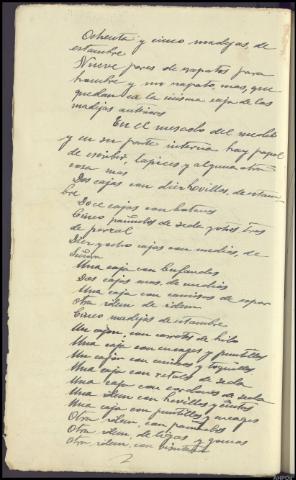 Ochenta y cinco madejas, de
estambre
Nueve pares de zapatos para
hombre y un zapato, mas, que
quedan en la misma caja de las
madejas
En el mesado del
y en su parte interna hay papel
de escribir, lapices y alguna otra
cosa mas
Dos cajas con diez hevillas, de estam-
bre
Doce cajas con botones
Cinco pañuelos de seda y otros tres
de percal
Diez y ocho cajas con medias, de
Señora
Una caja con bufandas
Dos cajas mas, de medias
Una caja con camisas de
Otra idem de idem
Cinco madejas de estambre
Un cajon, con carretes de hilo
Una caja con encages y puntillas
Un cajon con cintas y toquillas
Una caja con retales de seda
Una caja con cordones de seda
Una idem con hevillas y cintas
Una caja con puntillas y encages
Otra idem, con pañuelos
Otra idem, de ligas y gomas
Otra, idem, con